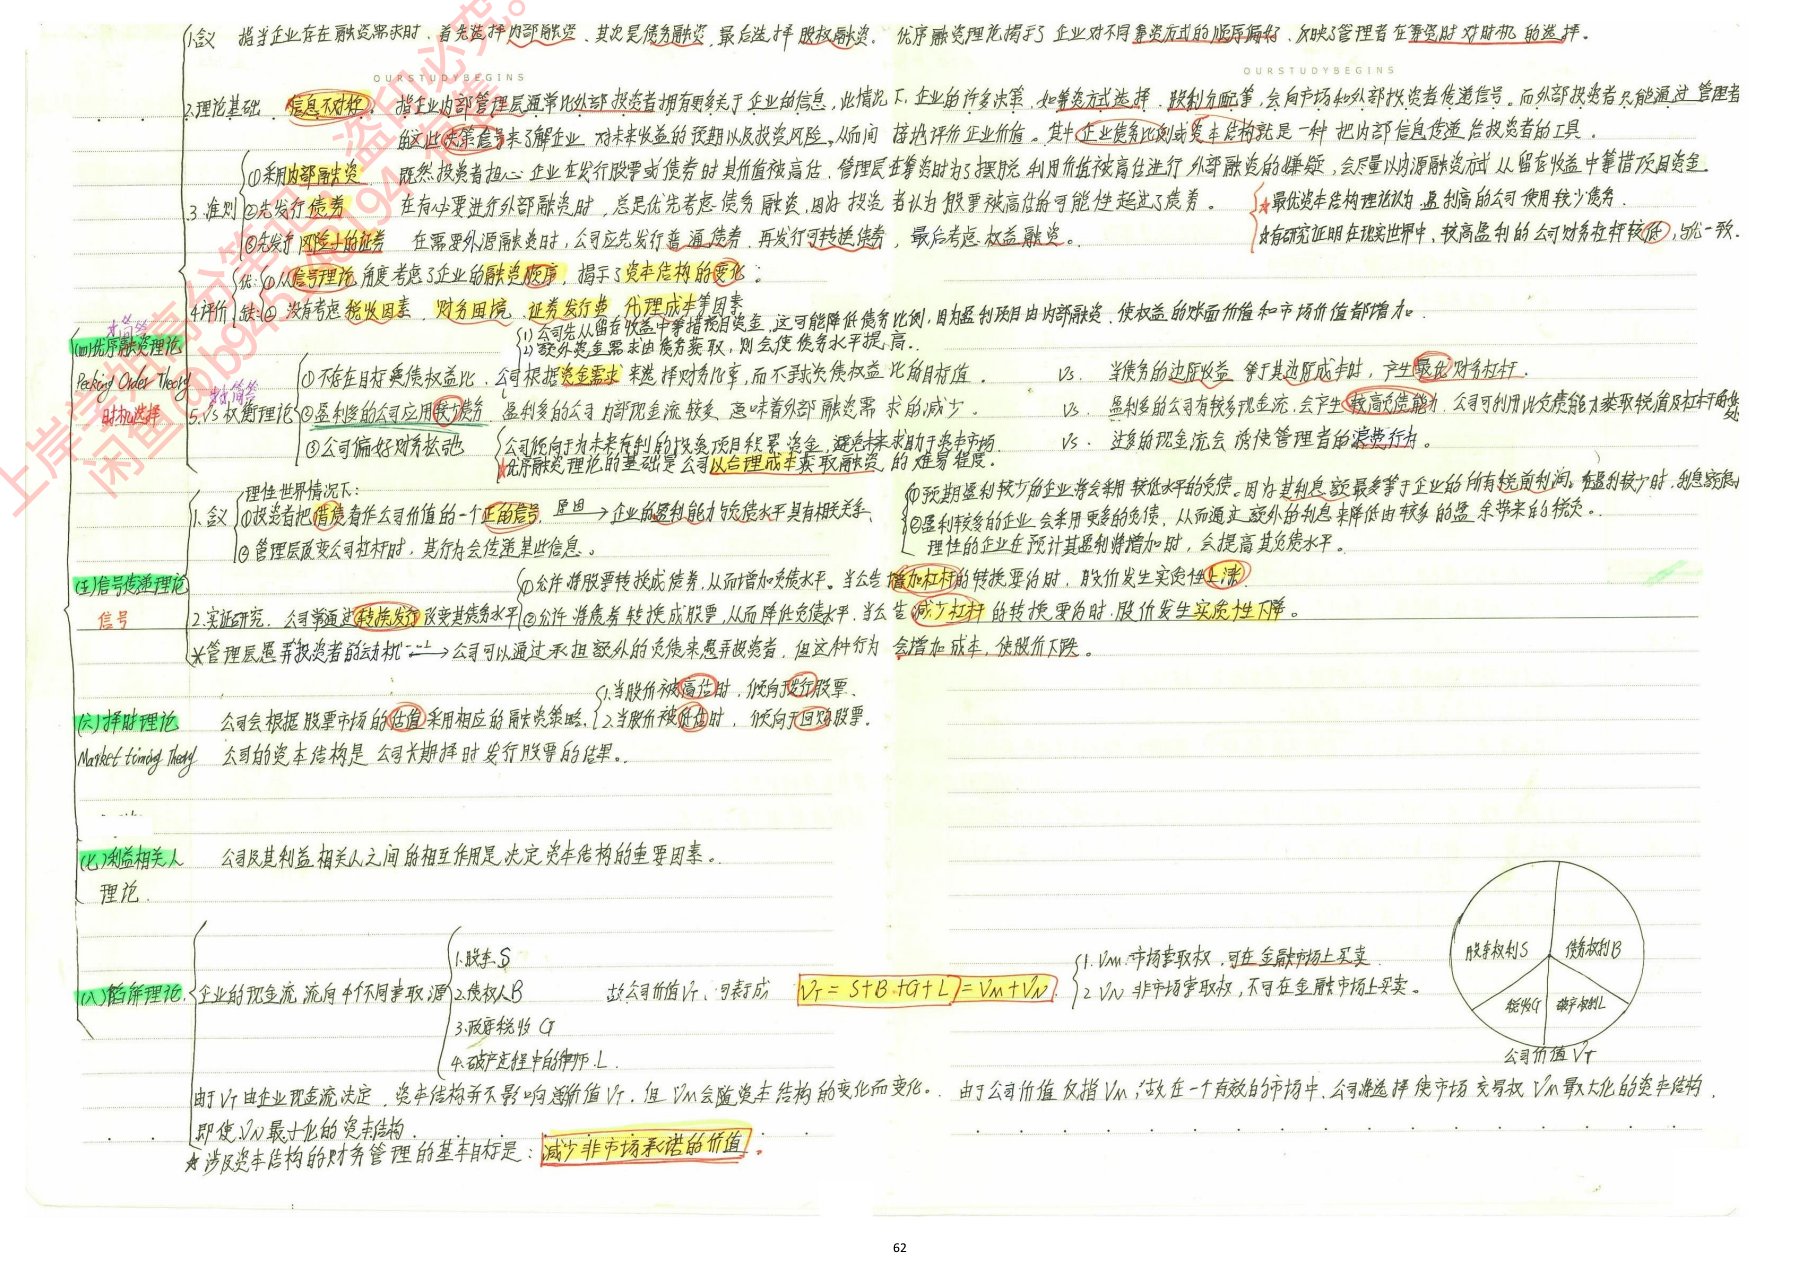 1.含义 指当企业存在融资需求时,首先选择内部融资、其次是债务融资,最后选择股权融资。优序融资理论揭示了企业对不同筹资方式的顺序偏好,反映了管理者在筹资时对时机的选择。
OURSTUDYBEGINS OURSTUDYBEGINS
2.理论基础 信息不对称:指企业内部管理层通常比外部投资者拥有更多关于企业的信息,此情况下,企业的许多决策,如筹资方式选择、股利分配等,会向市场和外部投资者传递信号。而外部投资者只能通过管理者
的这些决策信号来了解企业对未来收益的预期以及投资风险,从而间接地评价企业价值。其中企业债务比例或资本结构就是一种把内部信息传递给投资者的工具。
3.准则 ①采用内部融资 既然投资者担心企业在发行股票或债券时其价值被高估,管理层在筹资时为了摆脱利用价值被高估进行外部融资的嫌疑,会尽量以内源融资方式从留存收益中筹措项目资金。
②先发行债券 在有必要进行外部融资时,总是优先考虑债务融资,因为投资者认为股票被高估的可能性超过了债券。 ★最优资本结构理论认为盈利高的公司使用较少债务.
③先发行风险小的证券 在需要外源融资时,公司应先发行普通债券,再发行可转换债券,最后考虑权益融资。 ☆有研究证明在现实世界中,较高盈利的公司财务杠杆较低,与优一致.
4.评价 优:①从信号理论角度考虑了企业的融资顺序,揭示了资本结构的变化;
缺:② 没有考虑税收因素、财务困境、证券发行费、代理成本等因素
(1)公司先从留存收益中筹措项目资金,这可能降低债务比例,因为盈利项目由内部融资,使权益的账面价值和市场价值都增加.
(2)额外资金需求由债务获取,则会使债务水平提高.
(四)优序融资理论
Pecking Order Theory
时机选择
5.VS权衡理论 ①不存在目标负债权益比.公司根据资金需求来选择财务比率,而不寻求负债权益比的目标值. VS. 当债务的边际收益等于其边际成本时,产生最优财务杠杆.
②盈利多的公司应用较少债务 盈利多的公司内部现金流较多,意味着外部融资需求的减少. VS. 盈利多的公司有较多现金流,会产生较高负债能力,公司可利用此负债能力获取税盾及杠杆的其他好处
③公司偏好财务松弛 公司倾向于为未来有利的投资项目积累资金,避免未来求助于资本市场. VS. 过多的现金流会诱使管理者的浪费行为。
★优序融资理论的基础是公司以合理成本获取融资的难易程度.
理性世界情况下:
1.含义 ①投资者把借债看作公司价值的一个正的信号, 原因→企业的盈利能力与负债水平具有相关关系.
②管理层改变公司杠杆时,其行为会传递某些信息。
①预期盈利较少的企业将会采用较低水平的负债。因为其利息额最多等于企业的所有税前利润。
②盈利较多的企业会采用更多的负债,从而通过额外的利息来降低由较多的盈余带来的税负。
理性的企业在预计其盈利将增加时,会提高其负债水平。
(五)信号传递理论
信号
①允许将股票转换成债券,从而增加负债水平。当公告增加杠杆的转换要约时,股价发生实质性上涨.
2.实证研究. 公司常通过转换发行改变其债务水平 ②允许将债券转换成股票,从而降低负债水平,当公告减少杠杆的转换要约时.股价发生实质性下降。
★管理层愚弄投资者的动机→公司可以通过承担额外的负债来愚弄投资者,但这种行为会增加成本,使股价下跌。
1.当股价被高估时,倾向于发行股票、
(六)择时理论 公司会根据股票市场的估值采用相应的融资策略. 2.当股价被低估时,倾向于回购股票.
Market timing Theory 公司的资本结构是公司长期择时发行股票的结果.
(七)利益相关人理论 公司及其利益相关人之间的相互作用是决定资本结构的重要因素。
(八)馅饼理论 企业的现金流流向4个不同索取源
1.股东S
2.债权人B
3.政府税收G
4.破产过程中的律师L.
故公司价值VT,可表成 VT=S+B+G+L=VM+VN.
1.VM.市场索取权,可在金融市场上买卖
2 VN 非市场索取权,不可在金融市场上买卖。
股东权利S 债务权利B
税收G 破产权利L
公司价值VT
由于VT由企业现金流决定,资本结构并不影响总价值VT.但VM会随资本结构的变化而变化。由于公司价值仅指VM,故在一个有效的市场中,公司将选择使市场交易权VM最大化的资本结构,
即使VN最小化的资本结构.
★涉及资本结构的财务管理的基本目标是:减少非市场承诺的价值.
62